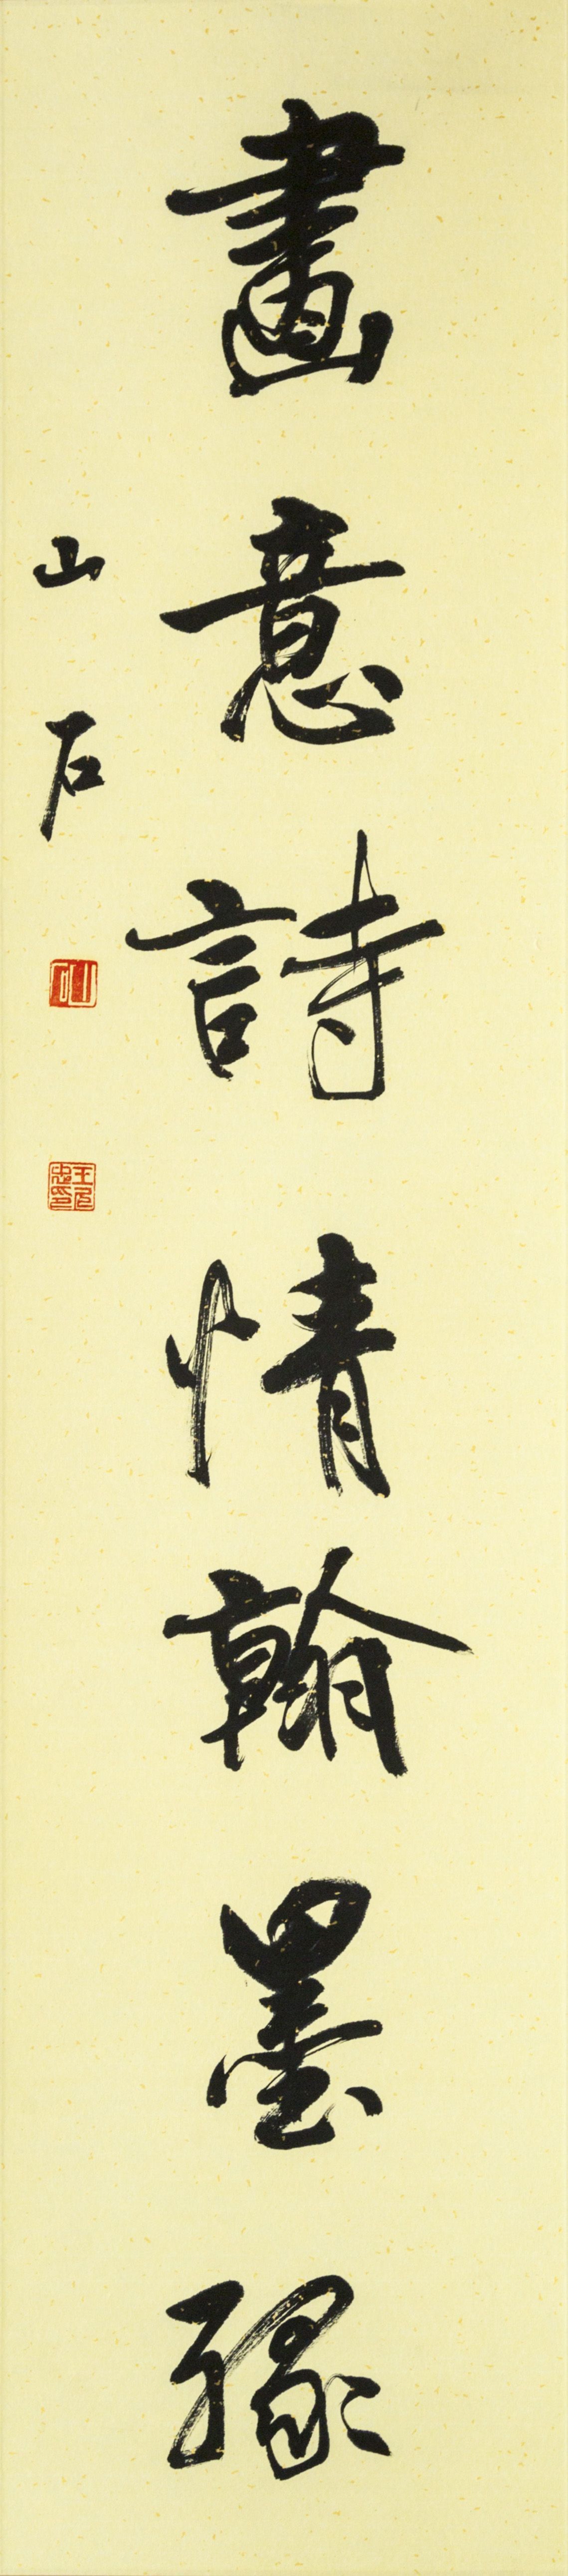 畫意詩情翰墨緣
山石